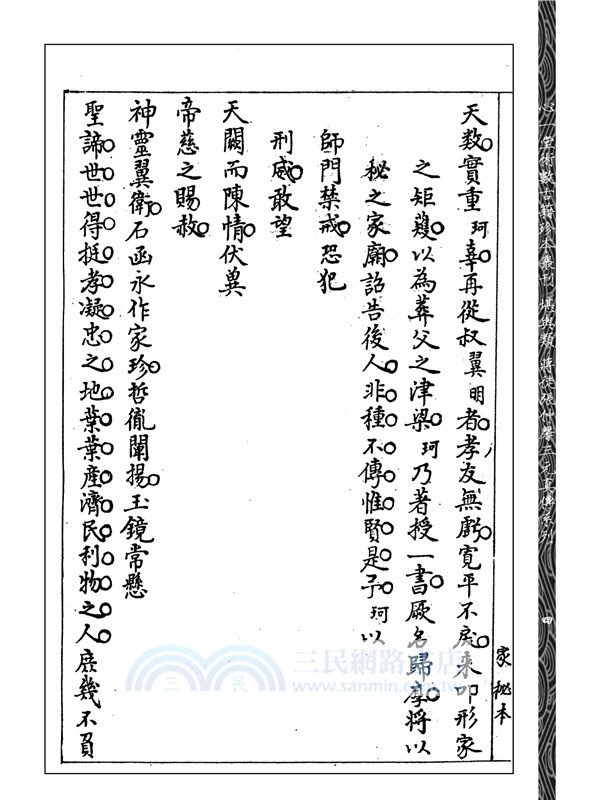 天数實重珂辜再從叔翼明者孝友無虧寬平不戾来叩形家
之矩蒦以為葬父之津梁珂乃著授一書厥名歸厚将以
秘之家廟詔告後人非種不傳惟賢是予珂以
師門禁戒恐犯
刑威敢望
天闕而陳情伏兾
帝慈之賜赦
神靈翼衛石函永作家珍哲胤闡揚玉鏡常懸
聖諦世世得挺孝凝忠之地葉葉産濟民利物之人庶幾不負
家秘本
心一堂術數古籍珍本叢刊 堪輿類
四
三民網路書店
三民
www.sanmin.com.tw